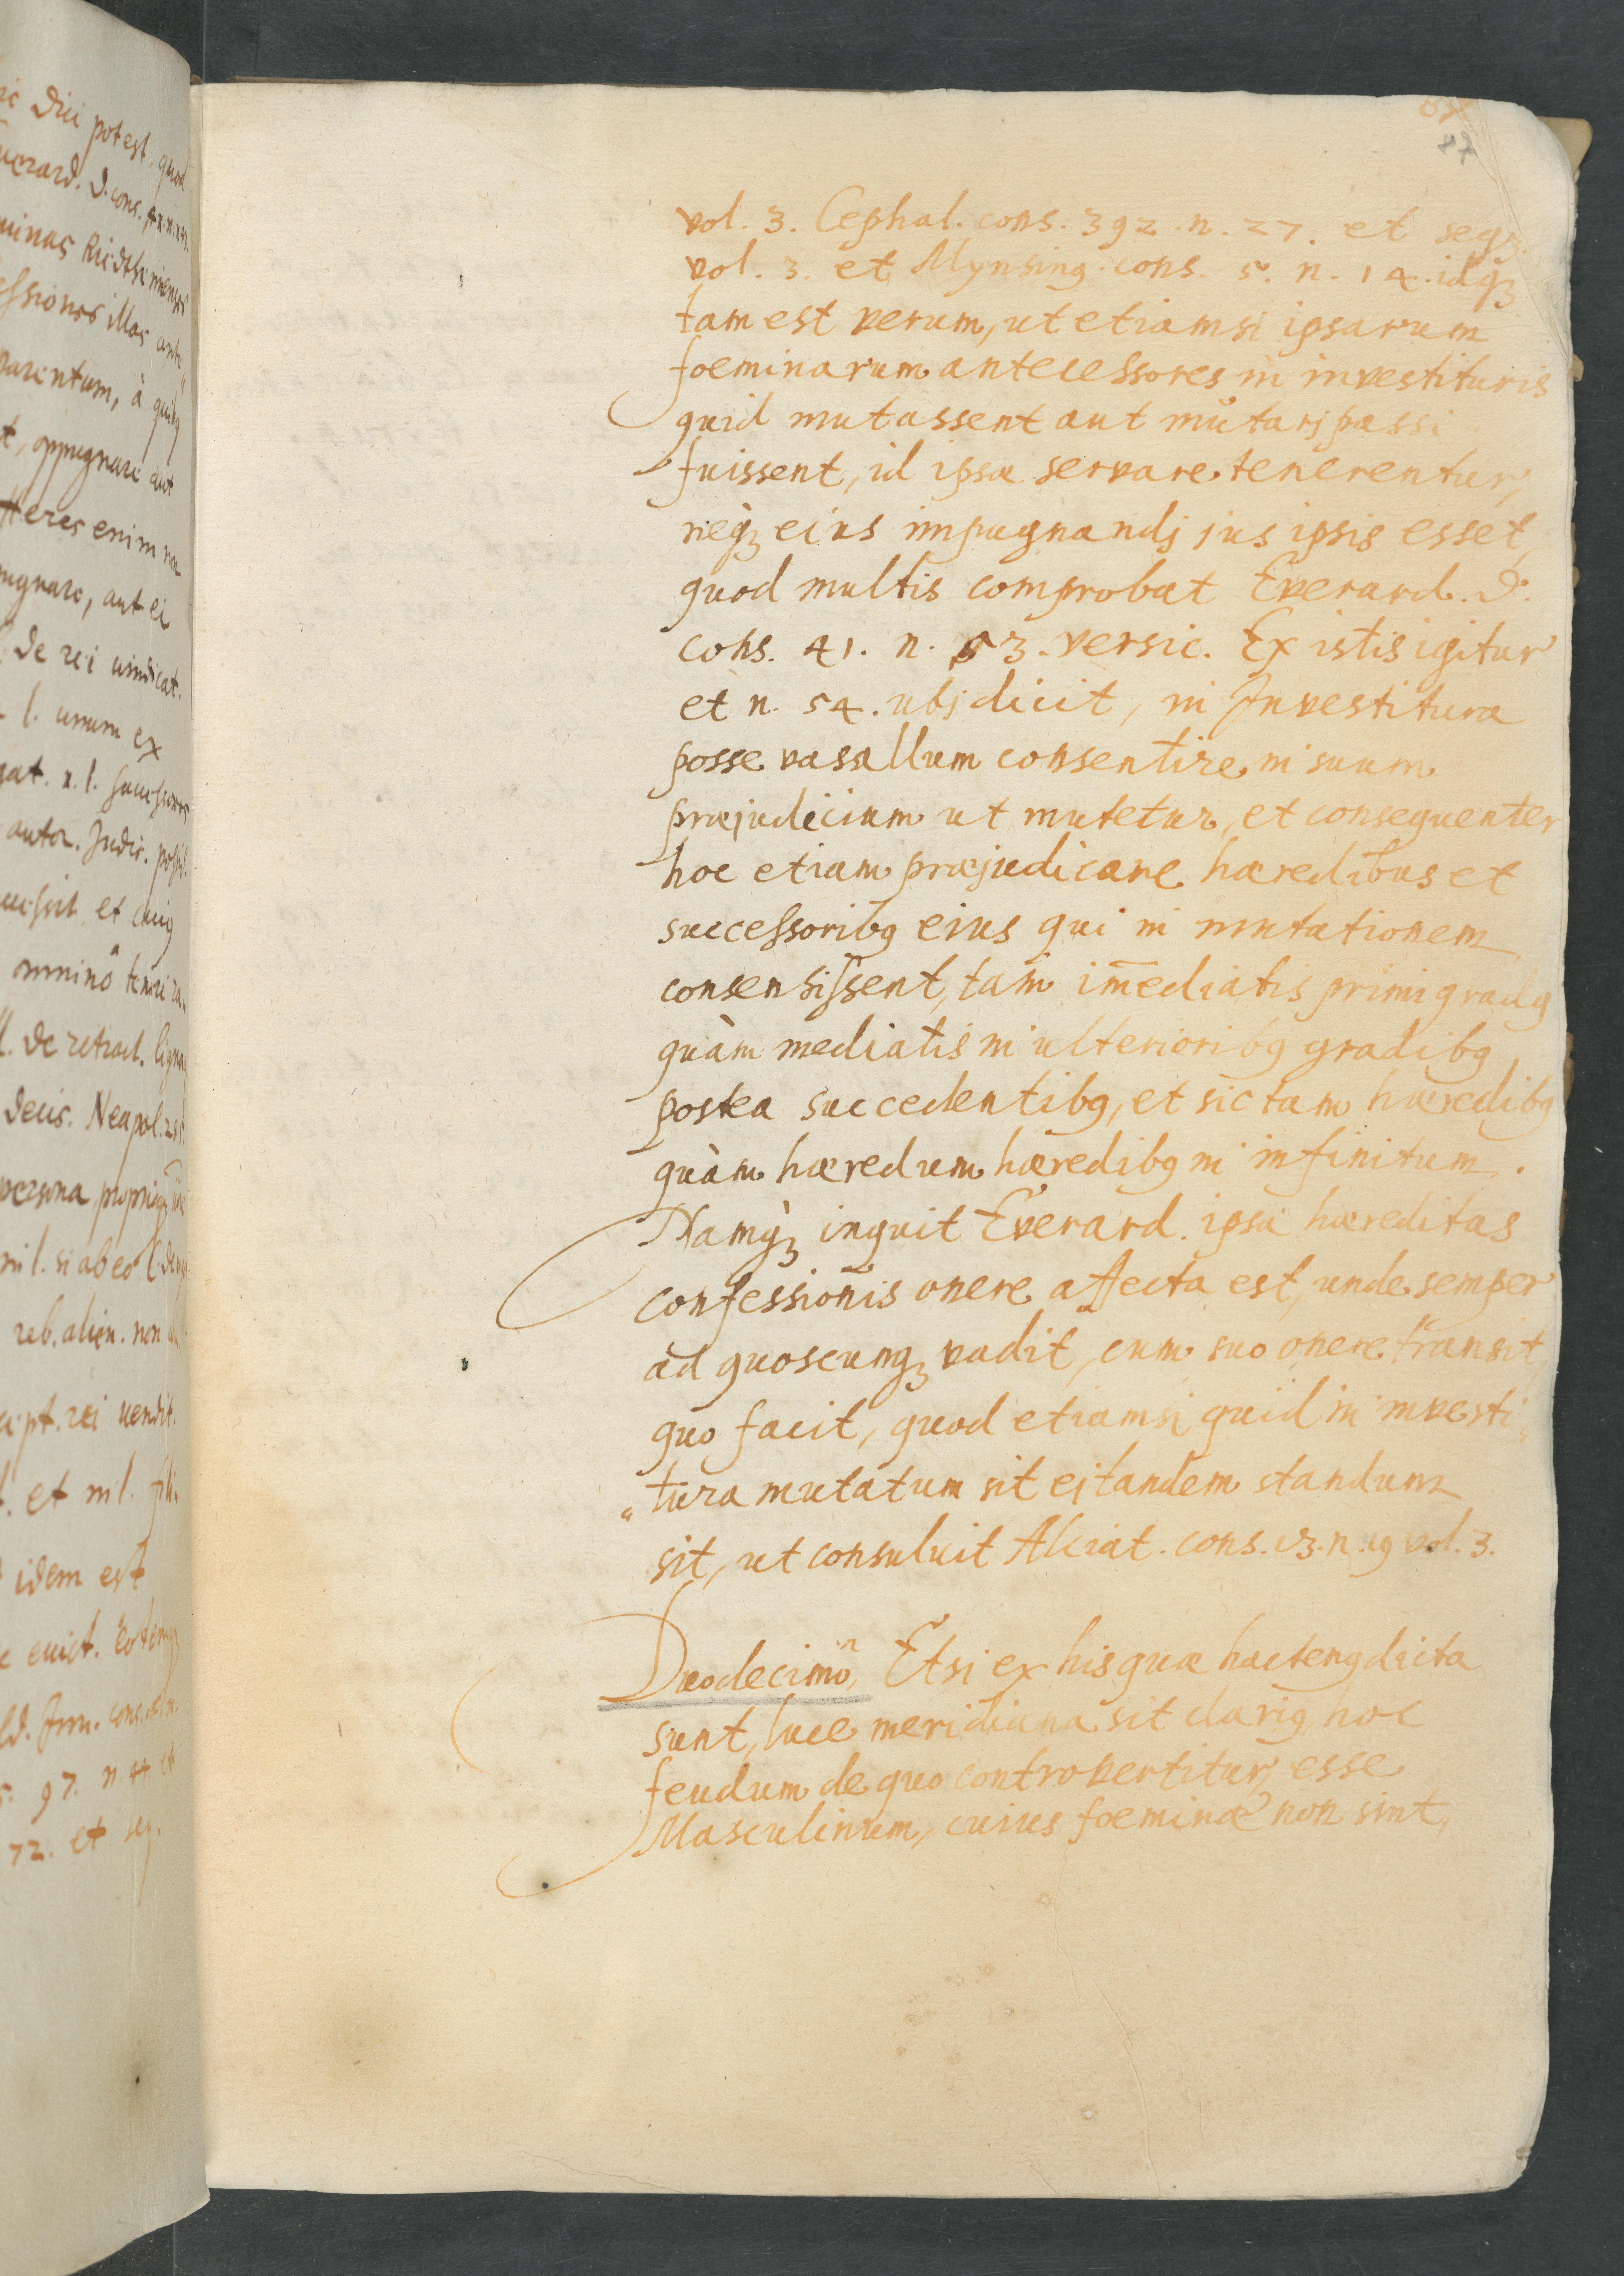 47
vol. 3. Cephal. cons. 392. n. 27. et seqq.
vol. 3. et Mynsing. cons. 5. n. 14. idqꝫ
tam est verum, ut etiamsi ipsarum
foeminarum antecessores in investituris
quid mutassent aut mutarj passi
fuissent, id ipsæ servare tenerentur,
neqꝫ eius impugnandj jus ipsis esset,
quod multis comprobat Everard. d.
cons. 41. n. 53. versic. Ex istis igitur
et n. 54. ubj dicit, in Investitura
posse vasallum consentire in suum
præjudicium ut mutetur, et consequenter
hoc etiam præjudicare hæredibus et
successoribꝰ eius qui in mutationem
consensissent, tam im̄ediatis primi gradꝰ
quàm mediatis in ulterioribꝰ gradibꝰ
postea succedentibꝰ, et sic tam hæredibꝰ
quàm hæredum hæredibꝰ in infinitum.
Namqꝫ inquit Everard. ipsa hæreditas
confessionis onere affecta est, unde semper
ad quoscunqꝫ vadit, cum suo onere transit,
quo facit, quod etiamsi quid in investi„
„tura mutatum sit ej tandem standum
sit, ut consuluit Alciat. cons. 13. n. 19 vol. 3.
Duodecimò, Etsi ex his quæ hactenꝰ dicta
sunt, luce meridiana sit clariꝰ, hoc
feudum de quo controvertitur, esse
Masculinum, cuius foeminæ non sint,
dici potest, quod
cons.
illas
parentum, à quibꝰ
oppugnare aut
Heres enim non
aut ei
De rei vindicat.
l. unum ex
et cuiꝰ
omninò
Decis. Neapol.
persona
in l. si ab eo
reb. alien. non
rei vendit.
et in l.
idem est
evict.
cons.
97. n. 44. et
72. et seq.